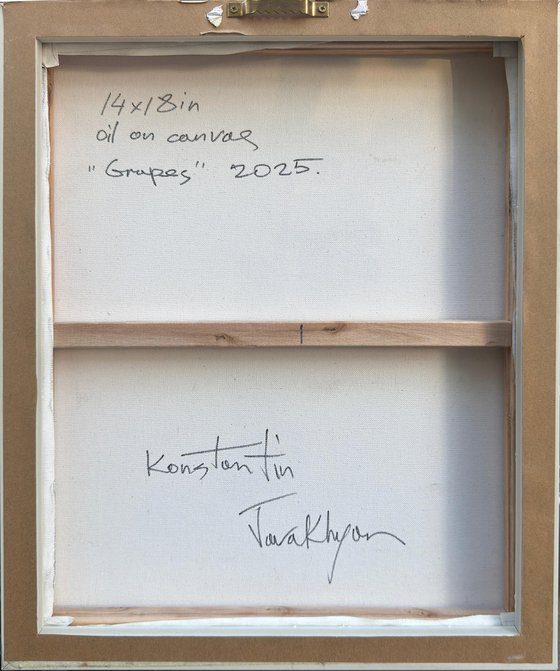 14x18in
oil on canvas
"Grapes" 2025.
Konstantin
Javakhyan